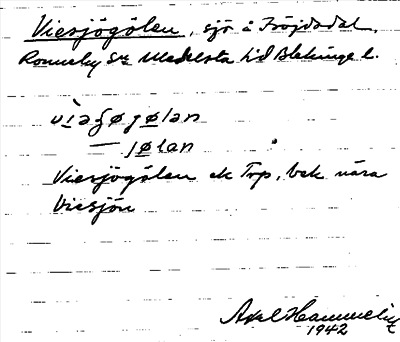 Viesjögölen, sjö å Fröjdadal,
Ronneby sn Medelsta hd Blekinge l.
vìaʃøgølan
— jølan
Viesjögölen ek Trp. bek nära
Viesjön
Axel Hammelin
1942